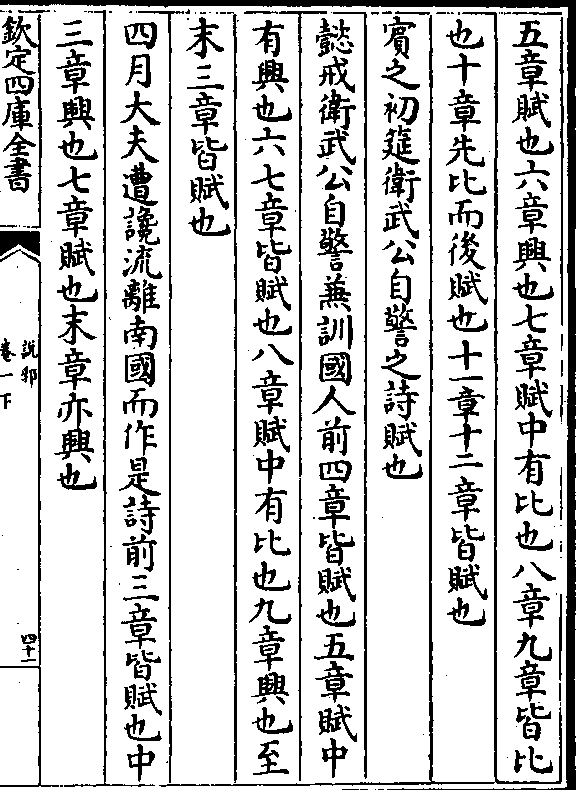 五章賦也六章興也七章賦中有比也八章九章皆比
也十章先比而後賦也十一章十二章皆賦也
賔之初筵衛武公自警之詩賦也
懿戒衛武公自警兼訓國人前四章皆賦也五章賦中
有興也六七章皆賦也八章賦中有比也九章興也至
末三章皆賦也
四月大夫遭讒流離南國而作是詩前三章皆賦也中
三章興也七章賦也末章亦興也
欽定四庫全書
說郛
卷一下
四十一